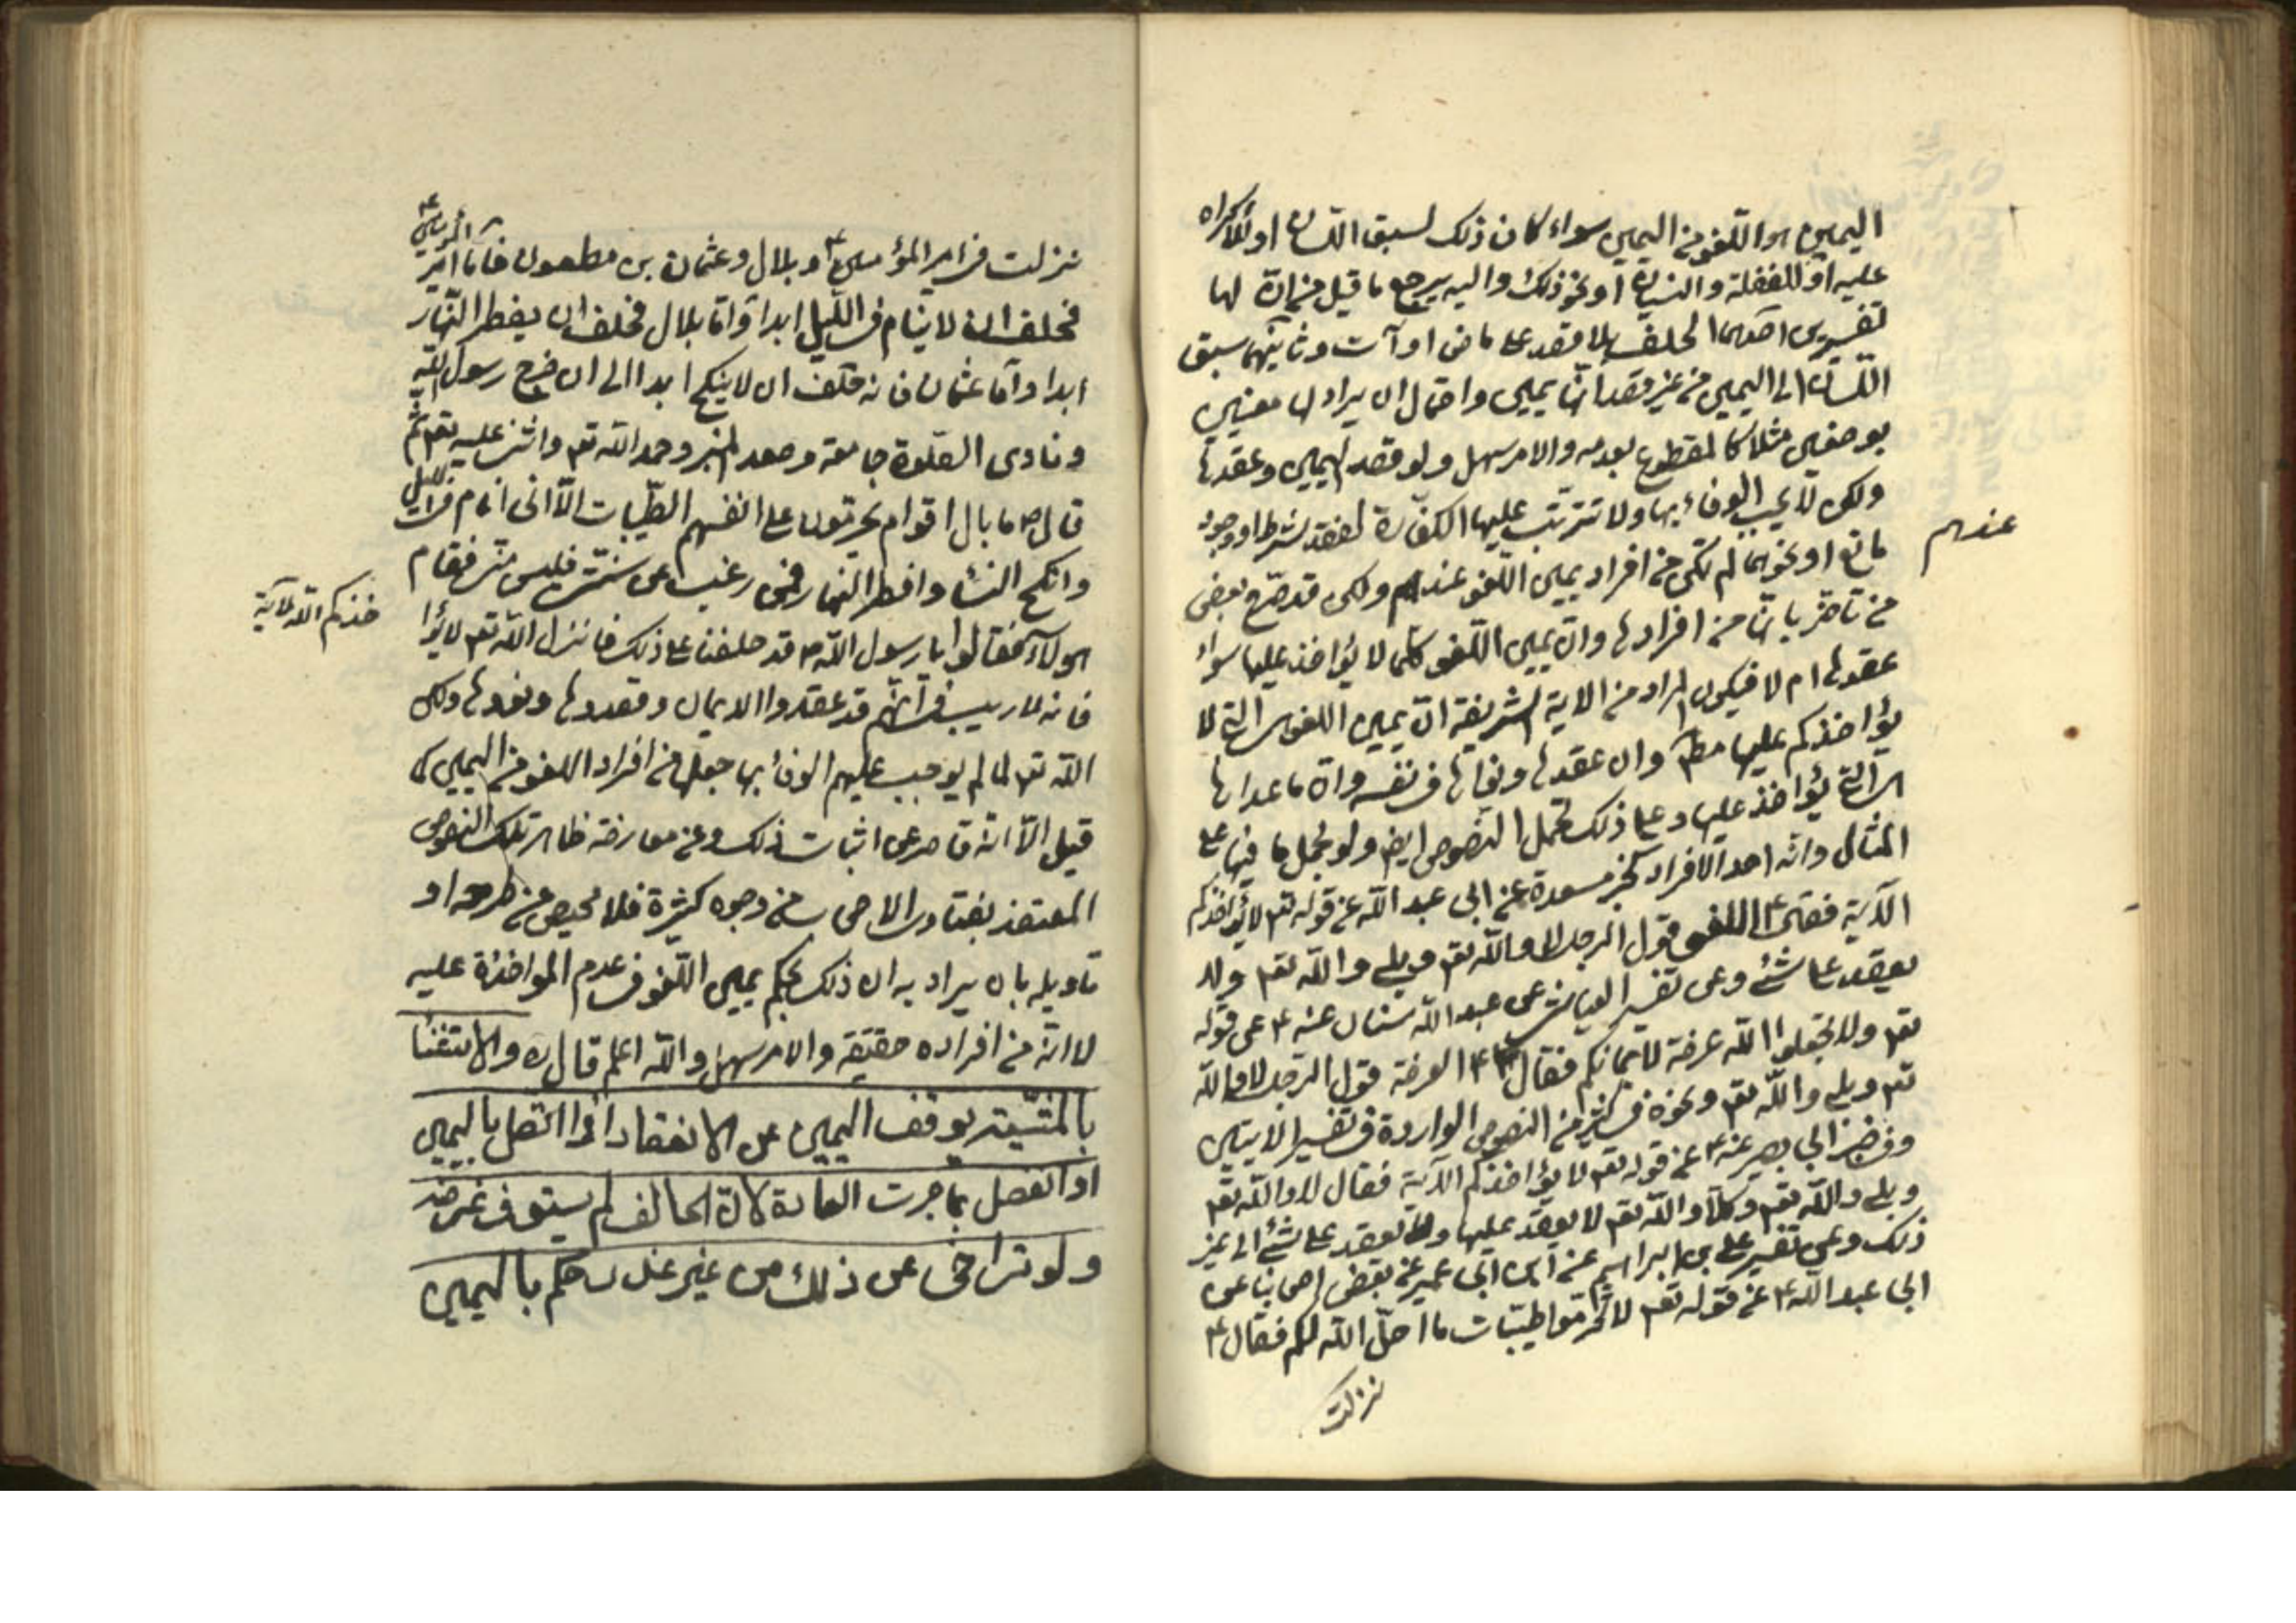 اليمين هو اللغو من اليمين سواء كان ذلك لسبق اللسان او للاكراه
عليه او للغفلة والنسيان او نحو ذلك واليه يرجع ما قيل من ان لها
تفسيرين احدهما الحلف بلا قصد على ماض او آت وثانيهما سبق
اللسان الى اليمين من غير قصد انها يمين واحتمال ان يراد لها معنيين
بوصفين مثلا كالمقطوع بعدمه والامر سهل ولو قصد اليمين وعقدها
ولكن لا يجب الوفاء بها ولا تترتب عليها الكفارة لفقد شرط او وجود
مانع او نحوهما لم تكن من افراد يمين اللغو عندهم ولكن قد صرح بعض
عندهم
من تاخر بانها من افرادها وان يمين اللغو كلما لا يؤاخذ عليها سواء
عقدها ام لا فيكون المراد من الاية الشريفة ان يمين اللغو هي التي لا
يؤاخذكم عليها مطلقا وان عقدها ونواها في نفسه وان ما عداها
هي التي يؤاخذ عليها وعلى ذلك تحمل النصوص ايض ولو بحمل ما فيها على
المثال وانه احد الافراد كخبر مسعدة عن ابي عبد الله عن قوله تعم لا يؤاخذكم
الآية فقال ع اللغو قول الرجل لا والله تعم وبلى والله تعم ولا
يعقد على شئ وعن تفسير العياشي عن عبد الله سنان عنه ع عن قوله
تعم ولا تجعلوا الله عرضة لايمانكم فقال ع العرضة قول الرجل لا والله
تعم وبلى والله تعم ونحوه في كثير من النصوص الواردة في تفسير الايتين
وفي خبر ابي بصير عنه ع عن قوله تعم لا يؤاخذكم الآية فقال لا والله تعم
وبلى والله تعم وكلا والله تعم لا يعقد عليها ولا يعقد على شئ الى غير
ذلك وعن تفسير علي بن ابراهيم عن ابن ابي عمير عن بعض اصحابنا عن
ابي عبد الله ع عن قوله تعم لا تحرموا طيبات ما احل الله لكم فقال ع
نزلت
نزلت في امير المؤمنين ع وبلال وعثمان بن مظعون فاما امير المؤمنين ع
فحلف ان لا ينام في الليل ابدا واما بلال فحلف ان يفطر النهار
ابدا واما عثمان فانه حلف ان لا ينكح ابدا الى ان خرج رسول الله
ونادى الصلوة جامعة وصعد المنبر وحمد الله تعم واثنى عليه تعم ثم
قال ص ما بال اقوام يحرمون على انفسهم الطيبات الا اني انام في الليل
وانكح النساء وافطر النهار فمن رغب عن سنتي فليس مني فقام
هؤلاء فقالوا يا رسول الله ص قد حلفنا على ذلك فانزل الله تعم لا يؤا
خذكم الله الآية
فانه لا ريب في انهم قد عقدوا الايمان وقصدوها ونووها ولكن
الله تعم لما لم يوجب عليهم الوفاء بها جعلها من افراد اللغو من اليمين كما
قيل الا انه قاصر عن اثبات ذلك وعن معارضة ظاهر تلك النصوص
المعتضد بفتاوى الاصحاب من وجوه كثيرة فلا محيص من طرحه او
تاويله بان يراد به ان ذلك بحكم يمين اللغو في عدم المواخذة عليه
لا انه من افراده حقيقة والامر سهل والله اعلم قال ره والاستثناء
بالمشيئة يوقف اليمين عن الانعقاد اذا اتصل باليمين
او انفصل بما جرت العادة لان الحالف لم يستوف غرضه
ولو تراخى عن ذلك من غير عذر حكم باليمين